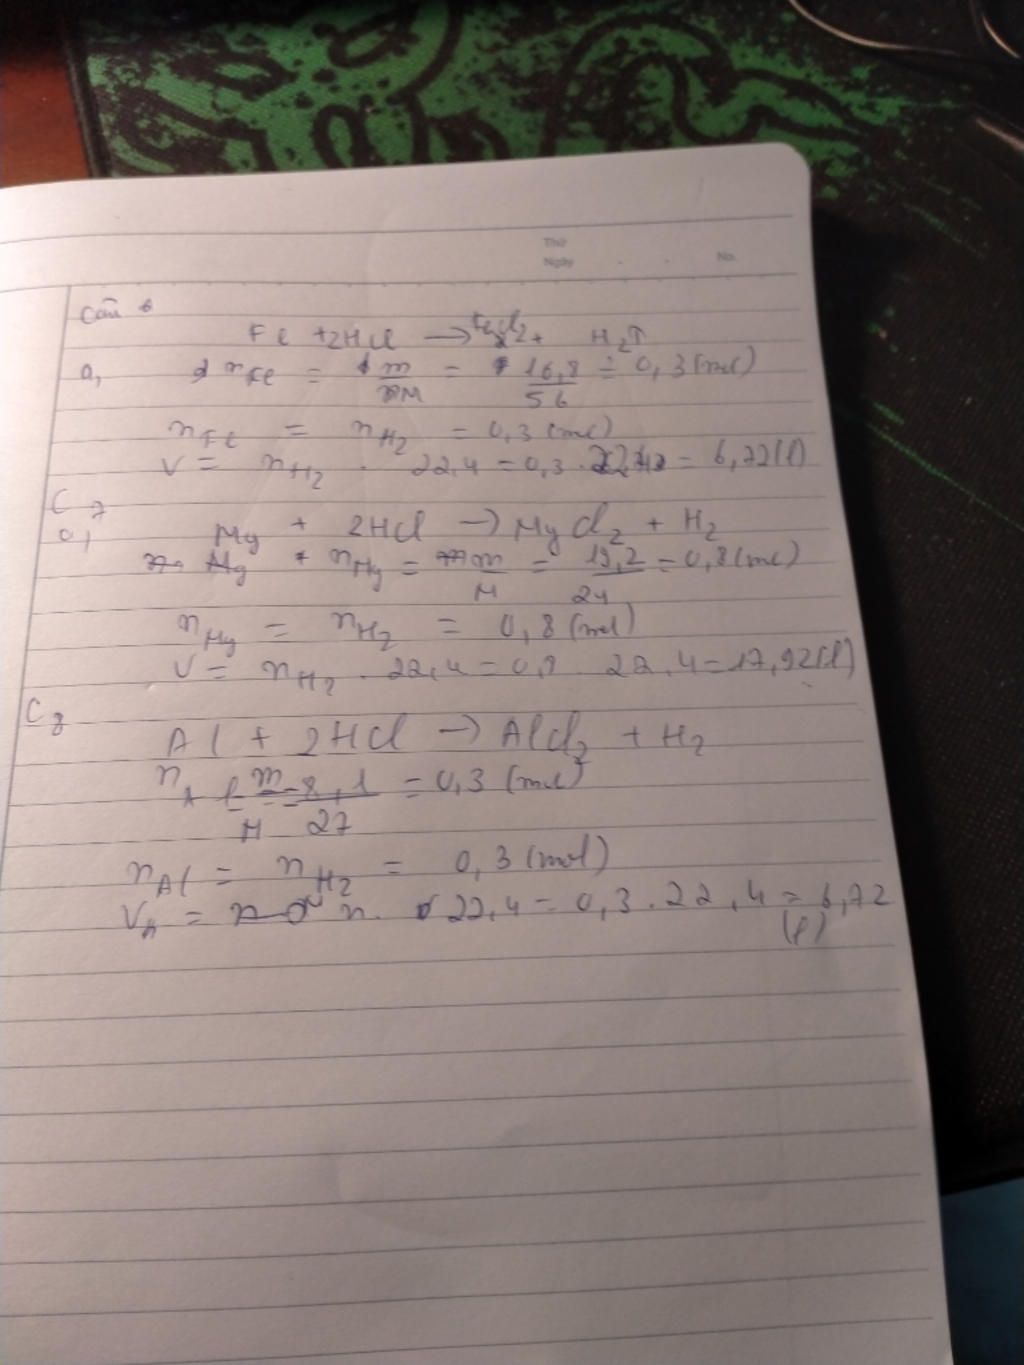 Thứ
Ngày No.
Câu 6
Fe + 2HCl → FeCl2 + H2↑
a, nFe = m/M = 16,8/56 = 0,3 (mol)
nFe = nH2 = 0,3 (mol)
V = nH2 . 22,4 = 0,3 . 22,4 = 6,72 (l)
C7
a, Mg + 2HCl → MgCl2 + H2
nMg = m/M = 19,2/24 = 0,8 (mol)
nMg = nH2 = 0,8 (mol)
V = nH2 . 22,4 = 0,8 . 22,4 = 17,92 (l)
C8
Al + 2HCl → AlCl2 + H2
nAl = m/M = 8,1/27 = 0,3 (mol)
nAl = nH2 = 0,3 (mol)
V = n . 22,4 = 0,3 . 22,4 = 6,72
(l)